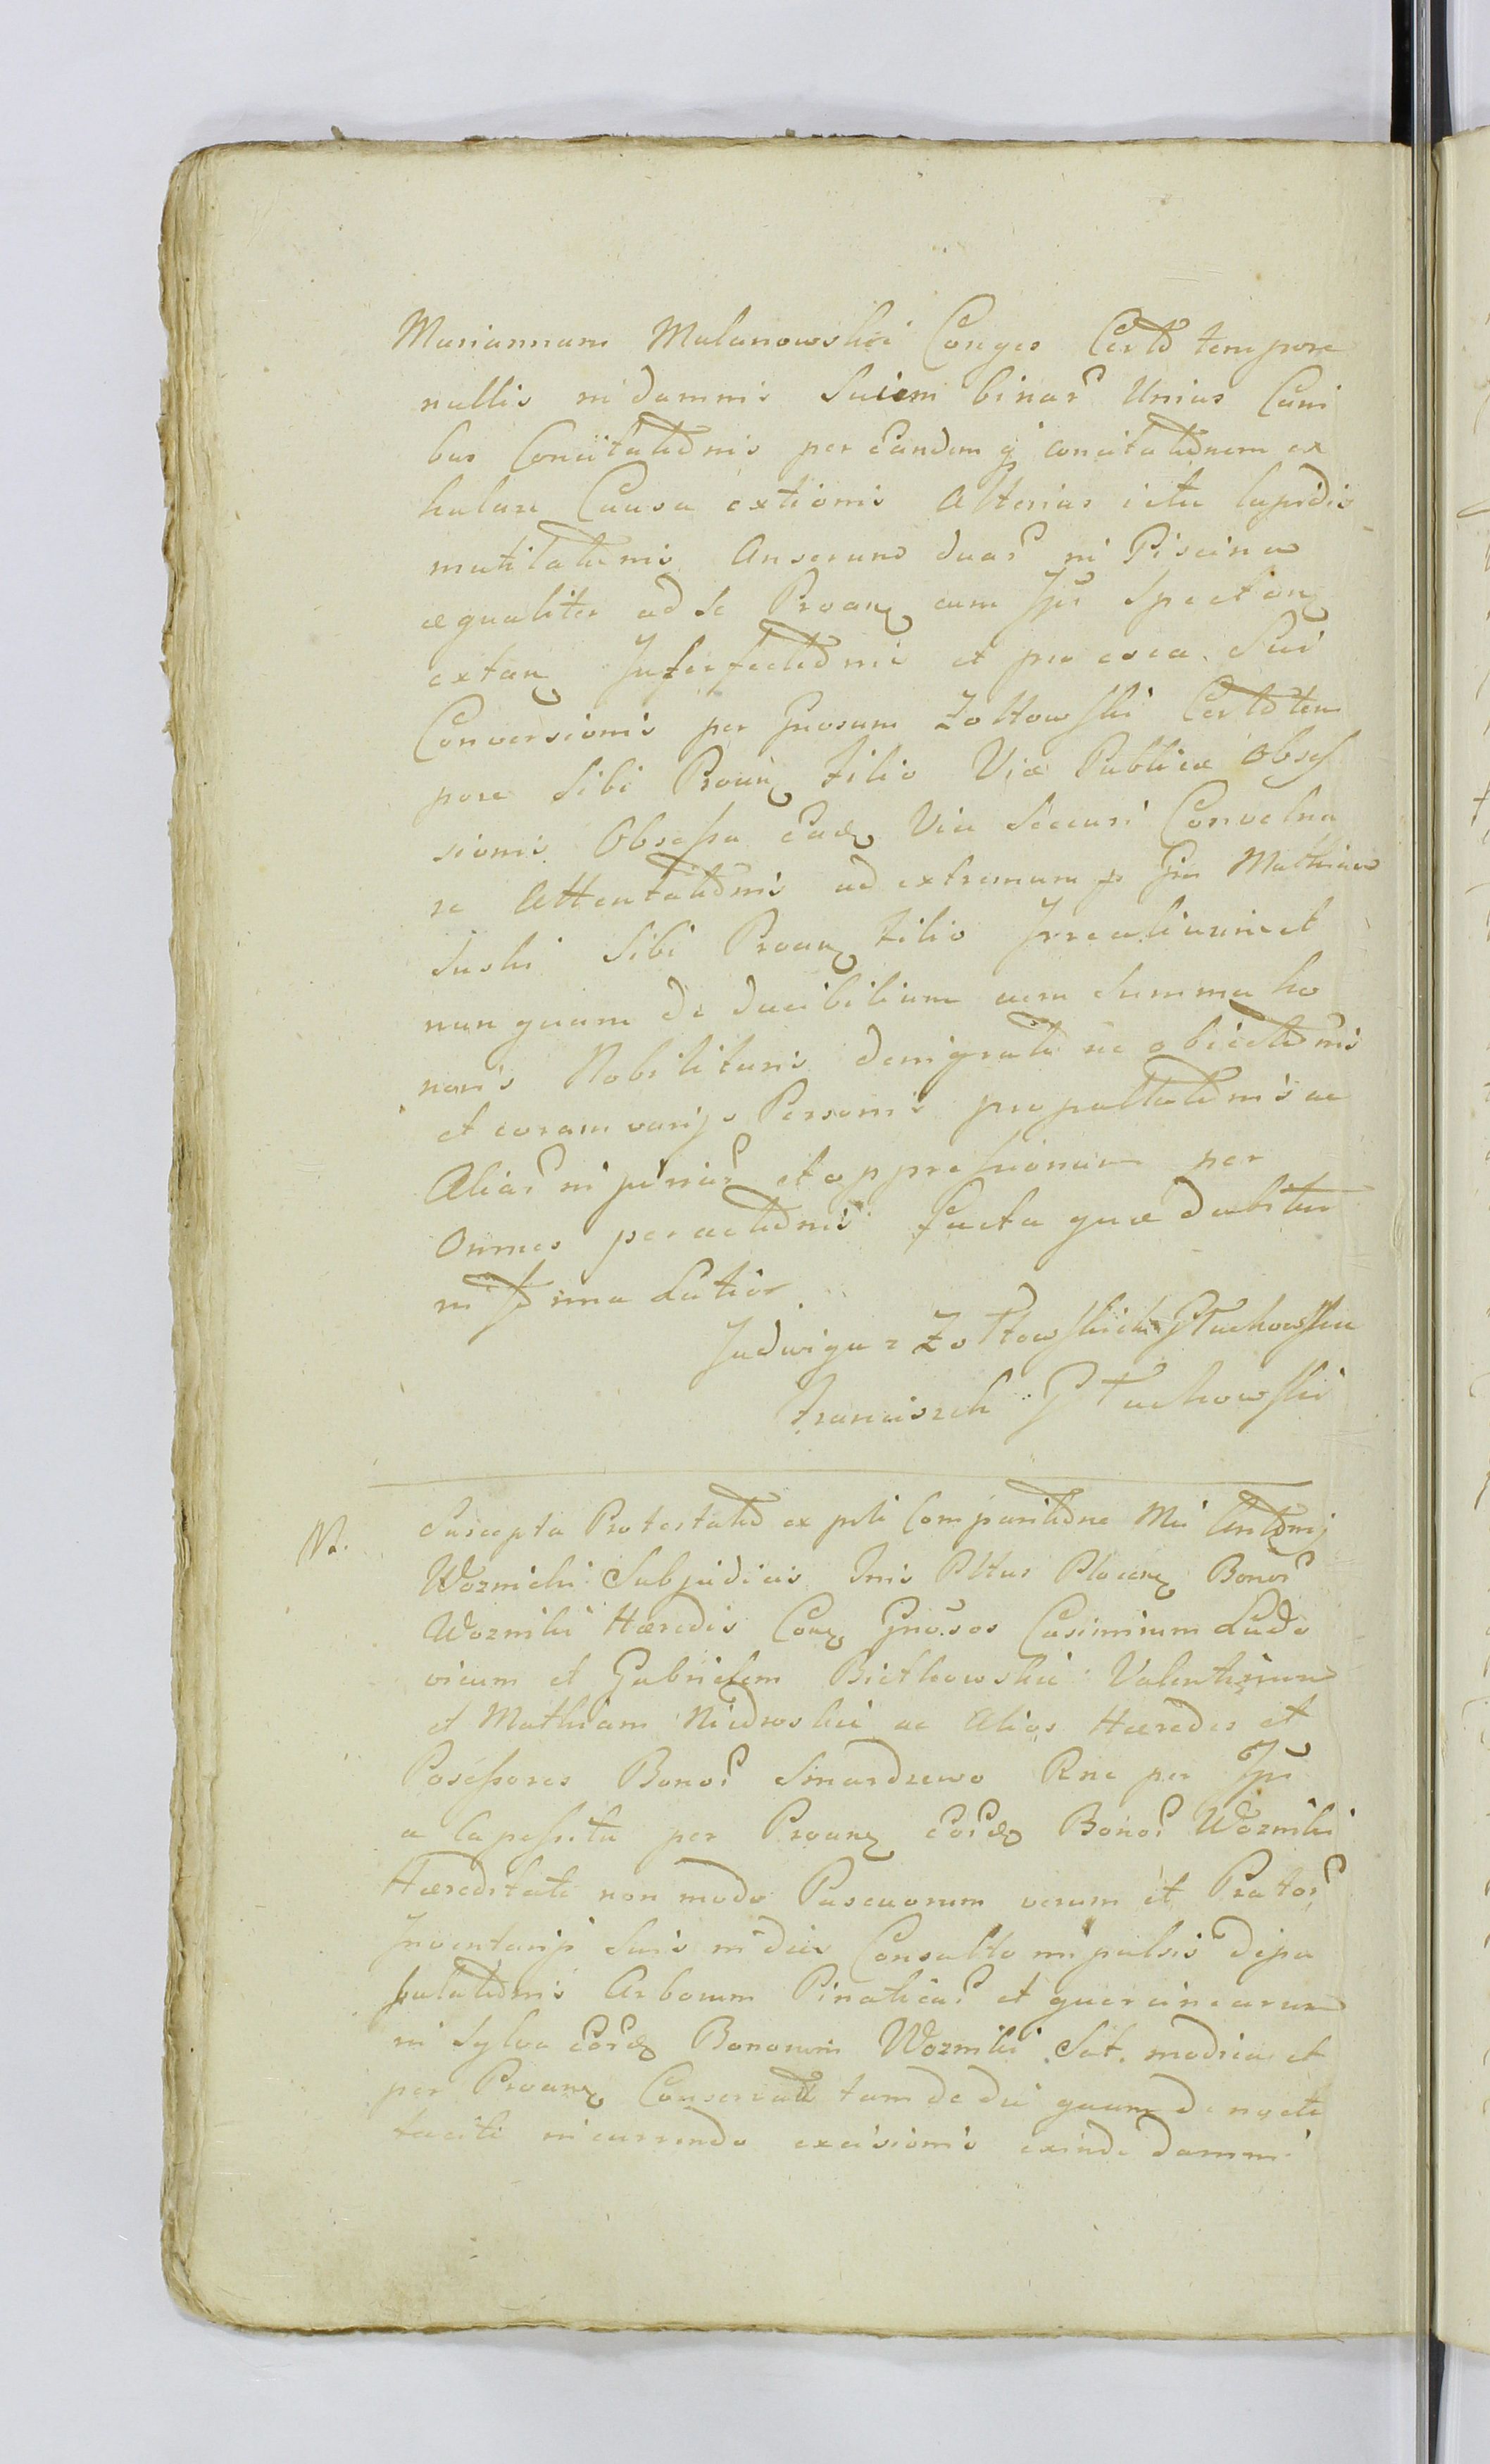 Mariannam Malanowskie Conges Certo tempore
nullis in damnis Suiem binar Unius Cani
bus Concitationis per eandem q concitationem ex
halare Causa extionis Alterius ictu lapidis
mutilationis Anserum duar in Piscina
æqualiter ad se Proang cum Ipi Spectang
extang Interfectionis et pro esca Sui
Conversionis per Gnosum Zołtowski Certo tem
pore Sibi Proang filio Viæ Publicæ Obses
sionis Obsessa eadg Via Securi Convelna
re Attentationis ad extremum p Gm Mathiam
Suski Sibi Proang filio Irrealium et
nunquam deducibilium cum Summa ho
noris Nobilitaris denigratione obiectionis
et coram varijs Personis propallationis ac
Aliar injuriar et oppressionum per
Omnes peractionis facta quæ dabitur
in forma Latior
Jadwiga z Zołtowskich Głuchowska
Franciszek Głuchowski
Na. Suscepta Protestatio ex psli Comparitione Mci Antonij
Woznicki Subjudicis Tris Pltus Ploceng Bonor
Wozniki Hæredis Cong Gnosos Casimirum Ludo
vicum et Gabrielem Bietkowskie Valentinum
et Mathiam Niedroskie ac Alios Hæredes et
Possessores Bonor Smardzewo Rne per Ipi
a capessita per Proang eordg Bonor Wozniki
Hæreditate non modo Pascuorum verum et Prator
Inventarijs Suis in dies Consulto impulsis depa
sculationis Arborum Pinaticar et quercinearum
in Sylva eordg Bonorum Wozniki Sat. modica et
per Proang Conservata tam de die quam de nocte
tacite incurrendo excisionis exinde damni